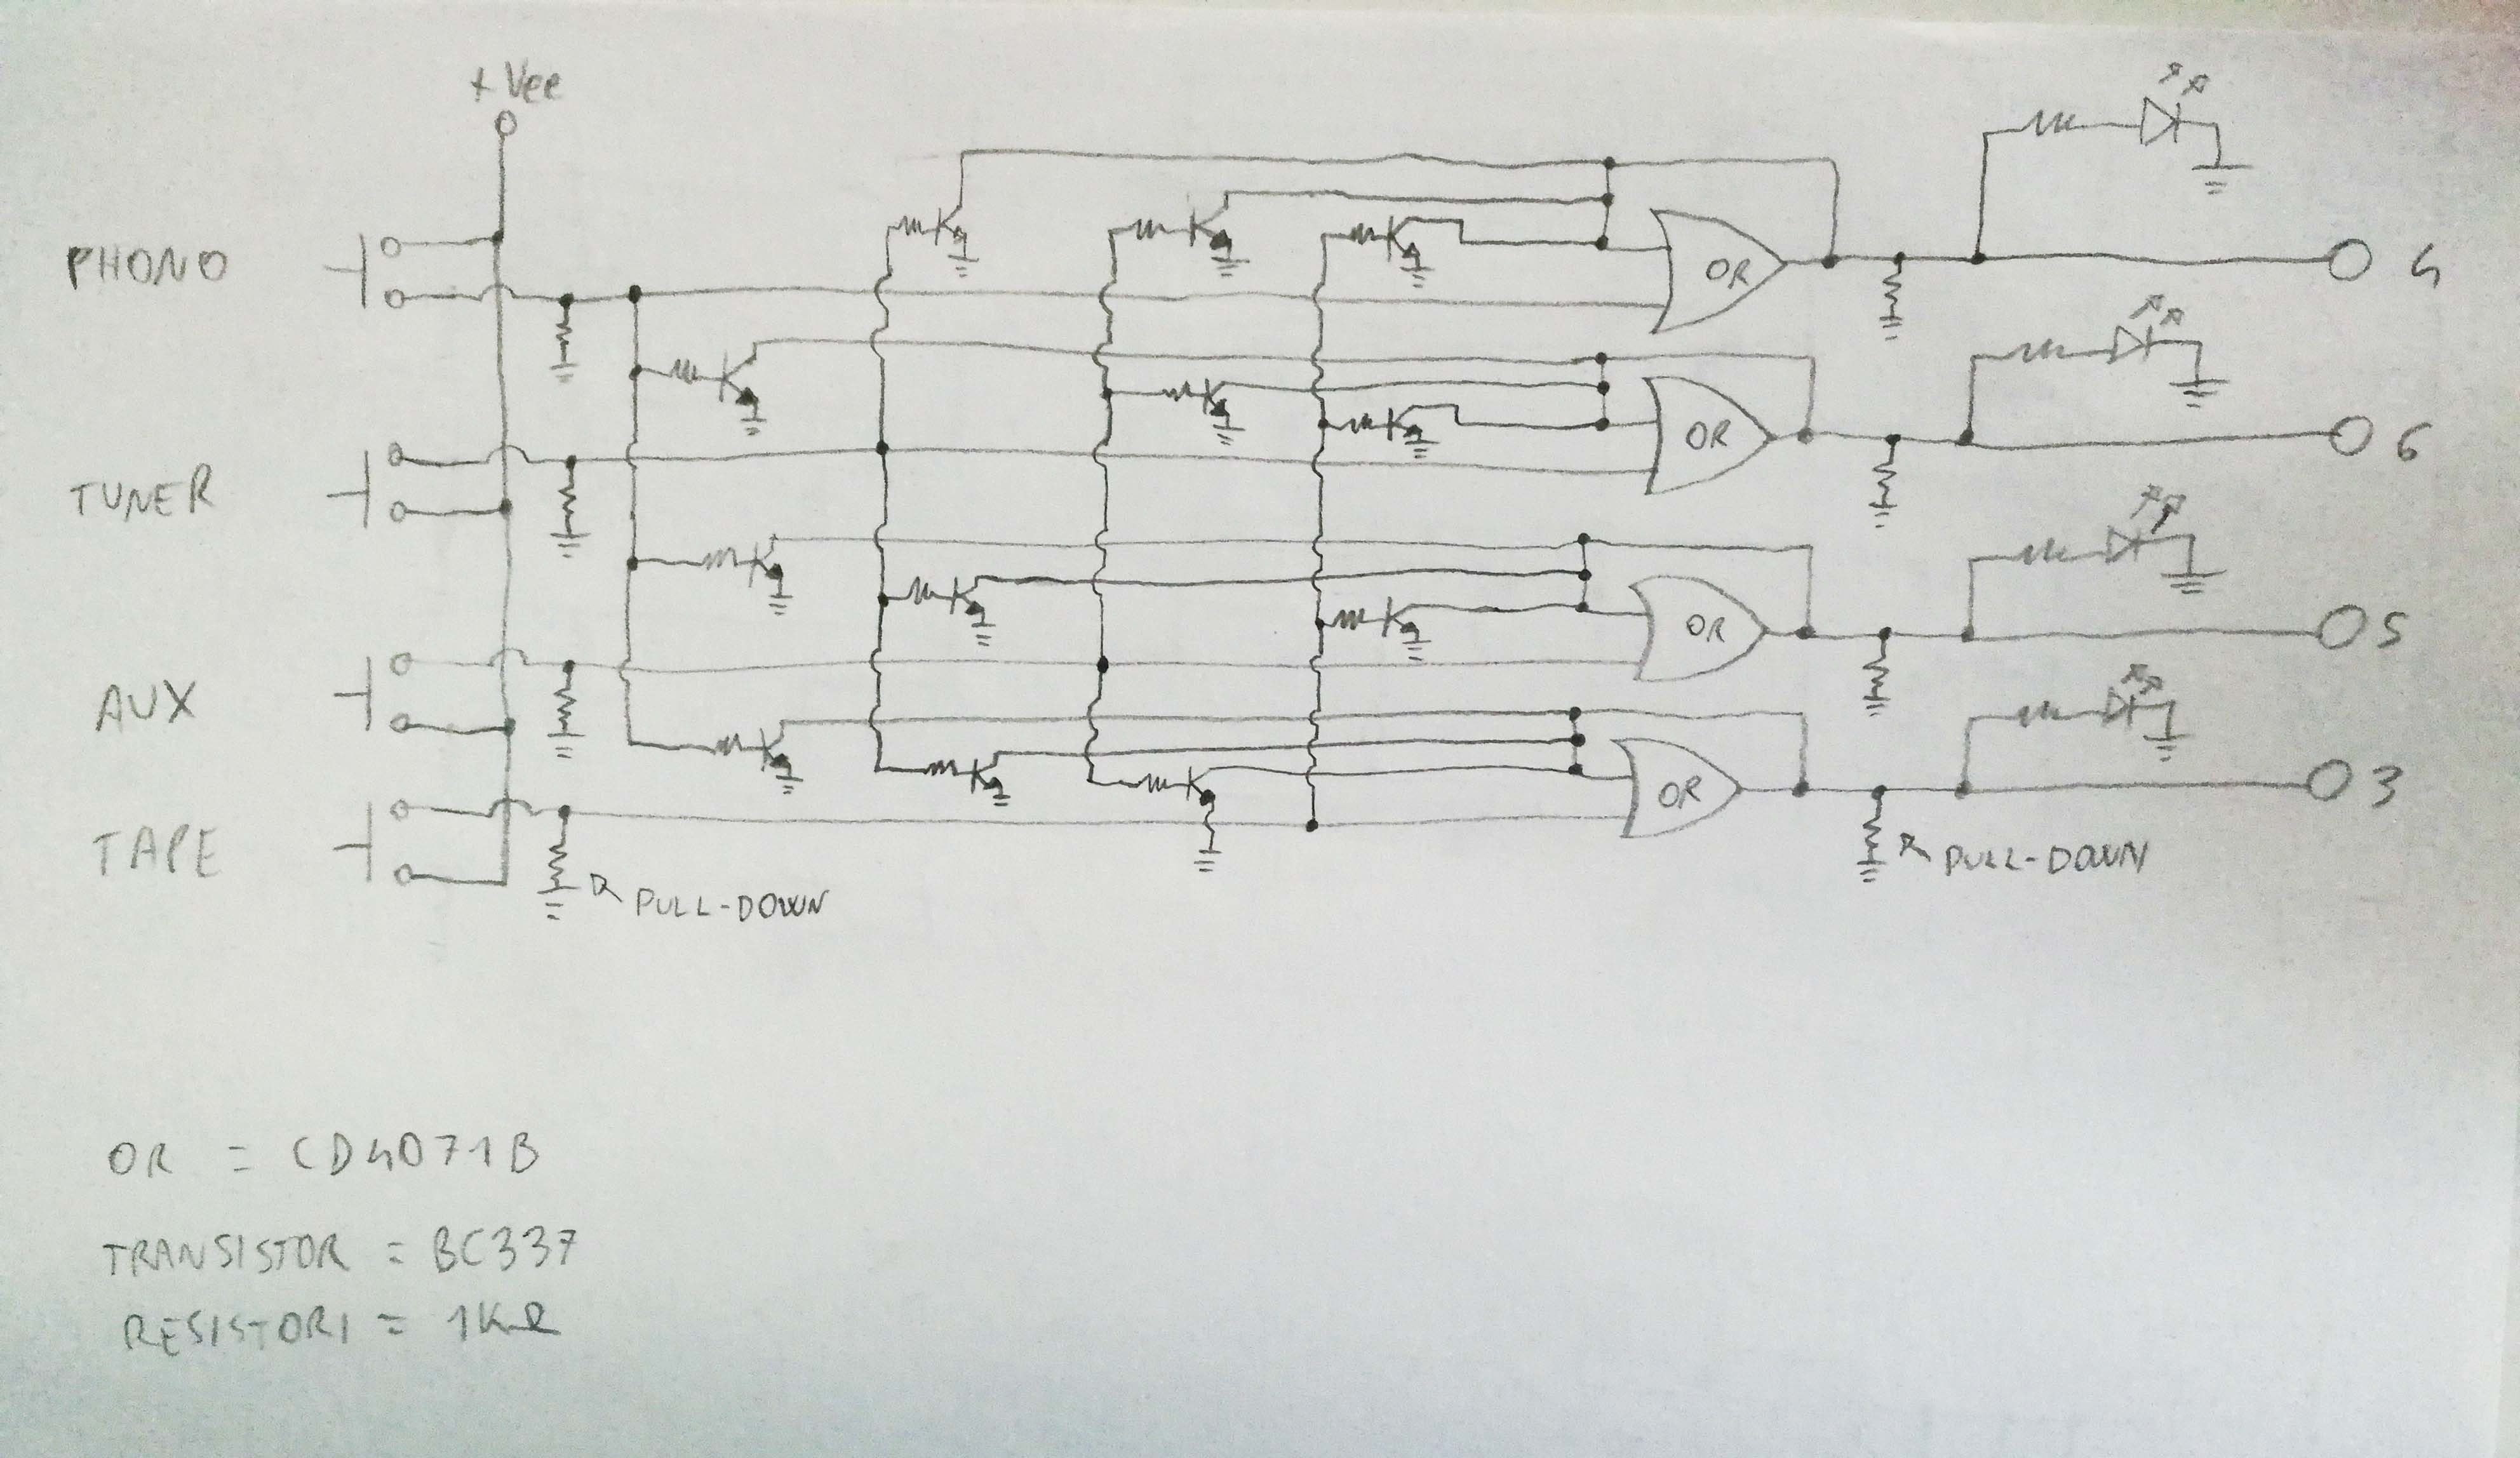 + Vee
PHONO
OR
4
TUNER
OR
6
AUX
OR
5
TAPE
OR
3
PULL-DOWN
PULL-DOWN
OR = CD4071B
TRANSISTOR = BC337
RESISTORI = 1KΩ